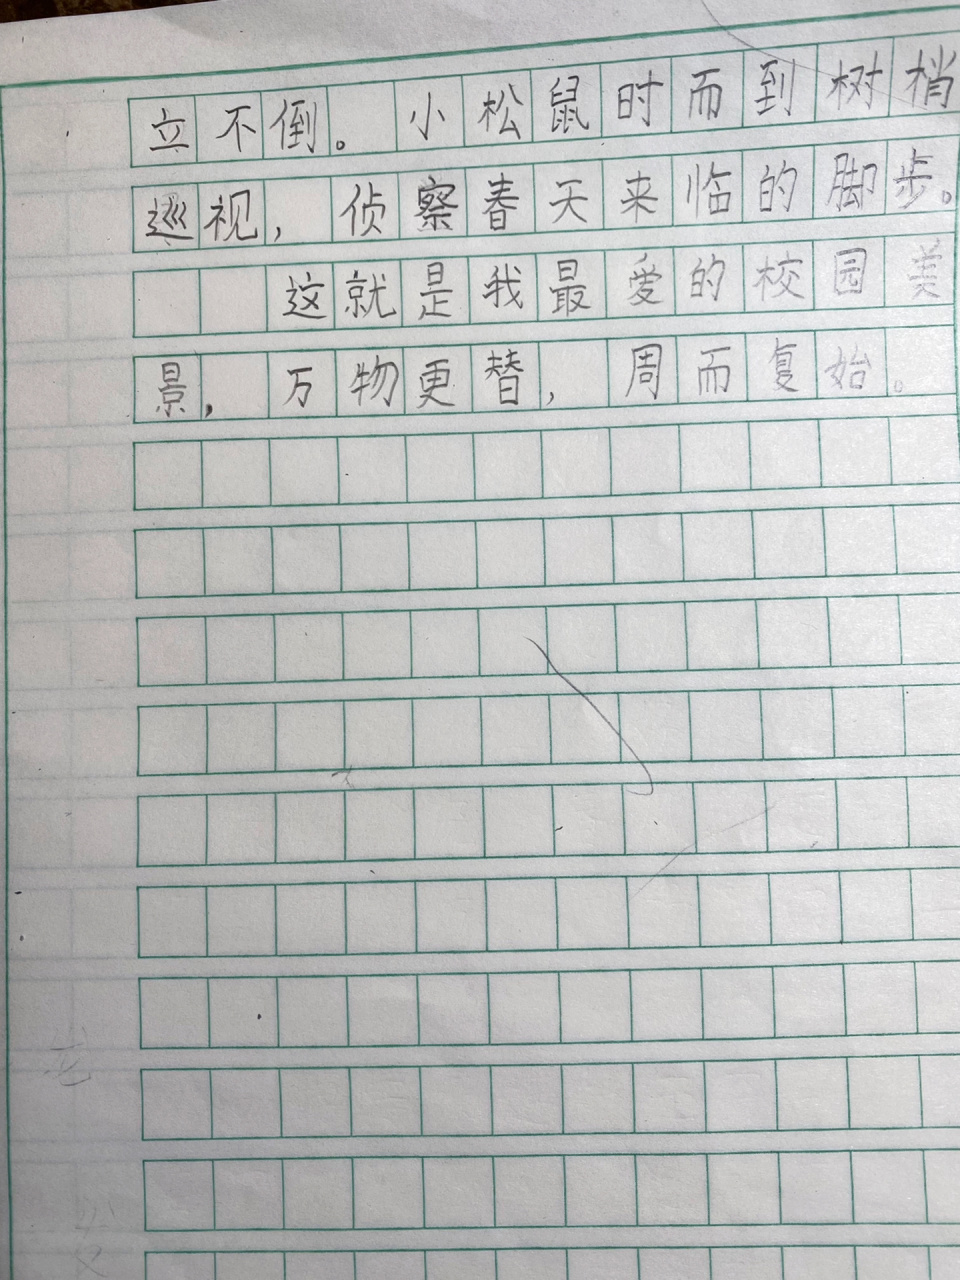 立不倒。小松鼠时而到树梢
巡视，侦察春天来临的脚步。
这就是我最爱的校园美
景，万物更替，周而复始。